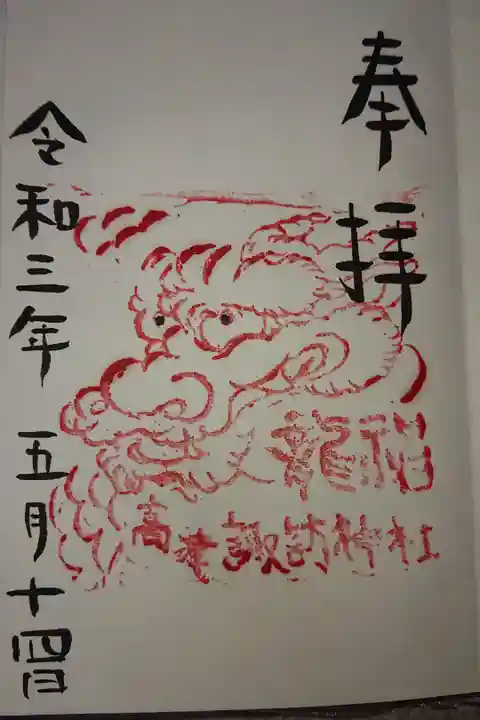 奉拝
龍神
高津諏訪神社
令和三年五月十四日